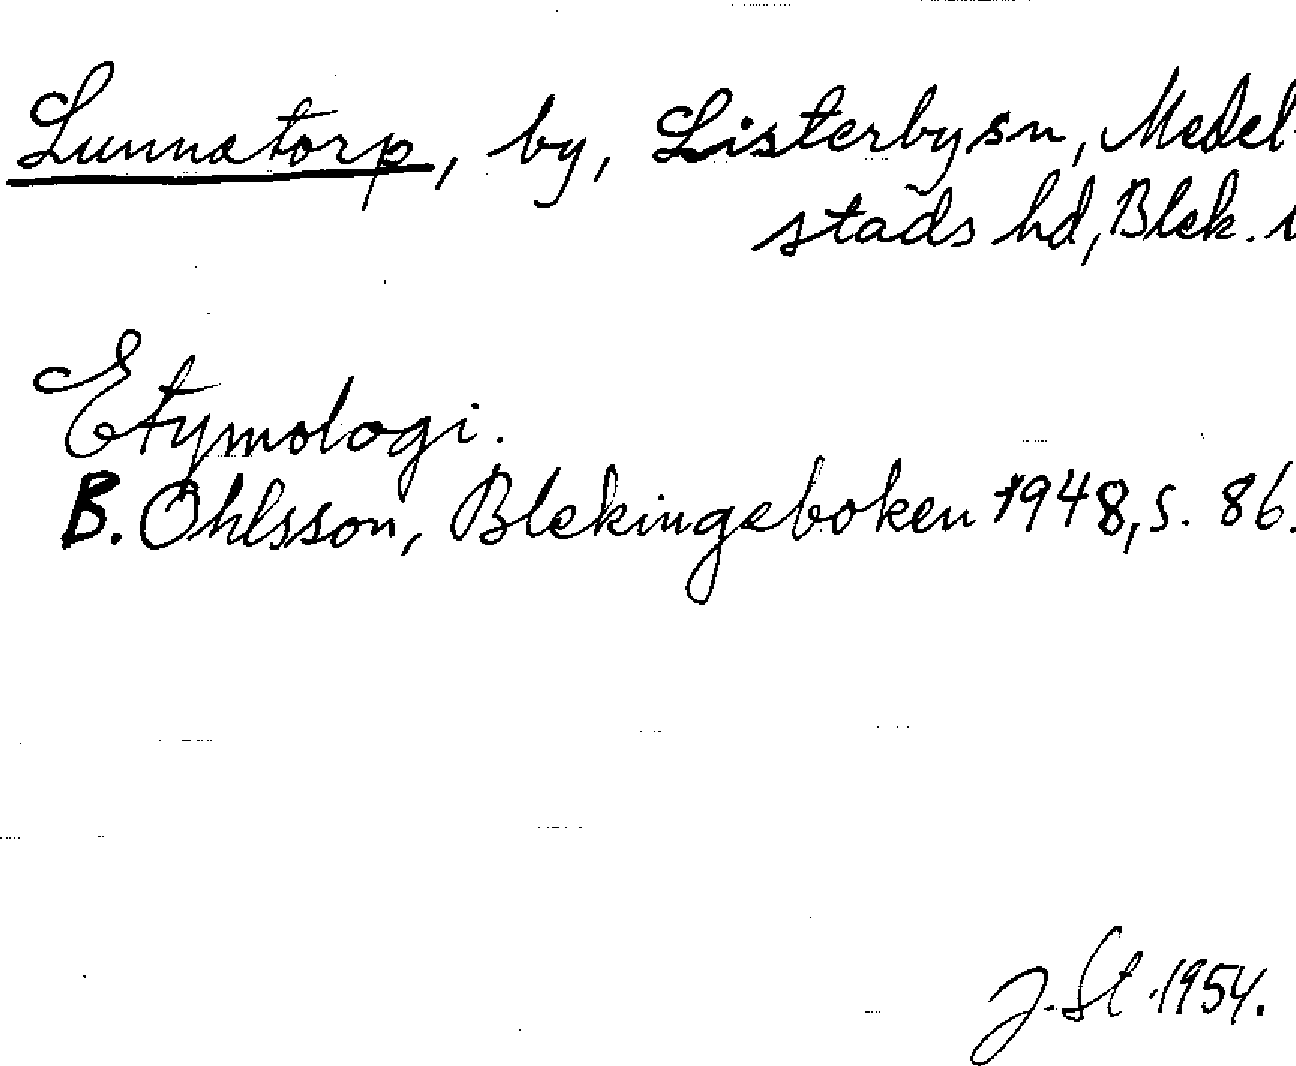 Lunnatorp, by, Listerby sn, Medel-
stads hd, Blek. l
Etymologi.
B. Ohlsson, Blekingeboken 1948, s. 86.
J. St. 1954.